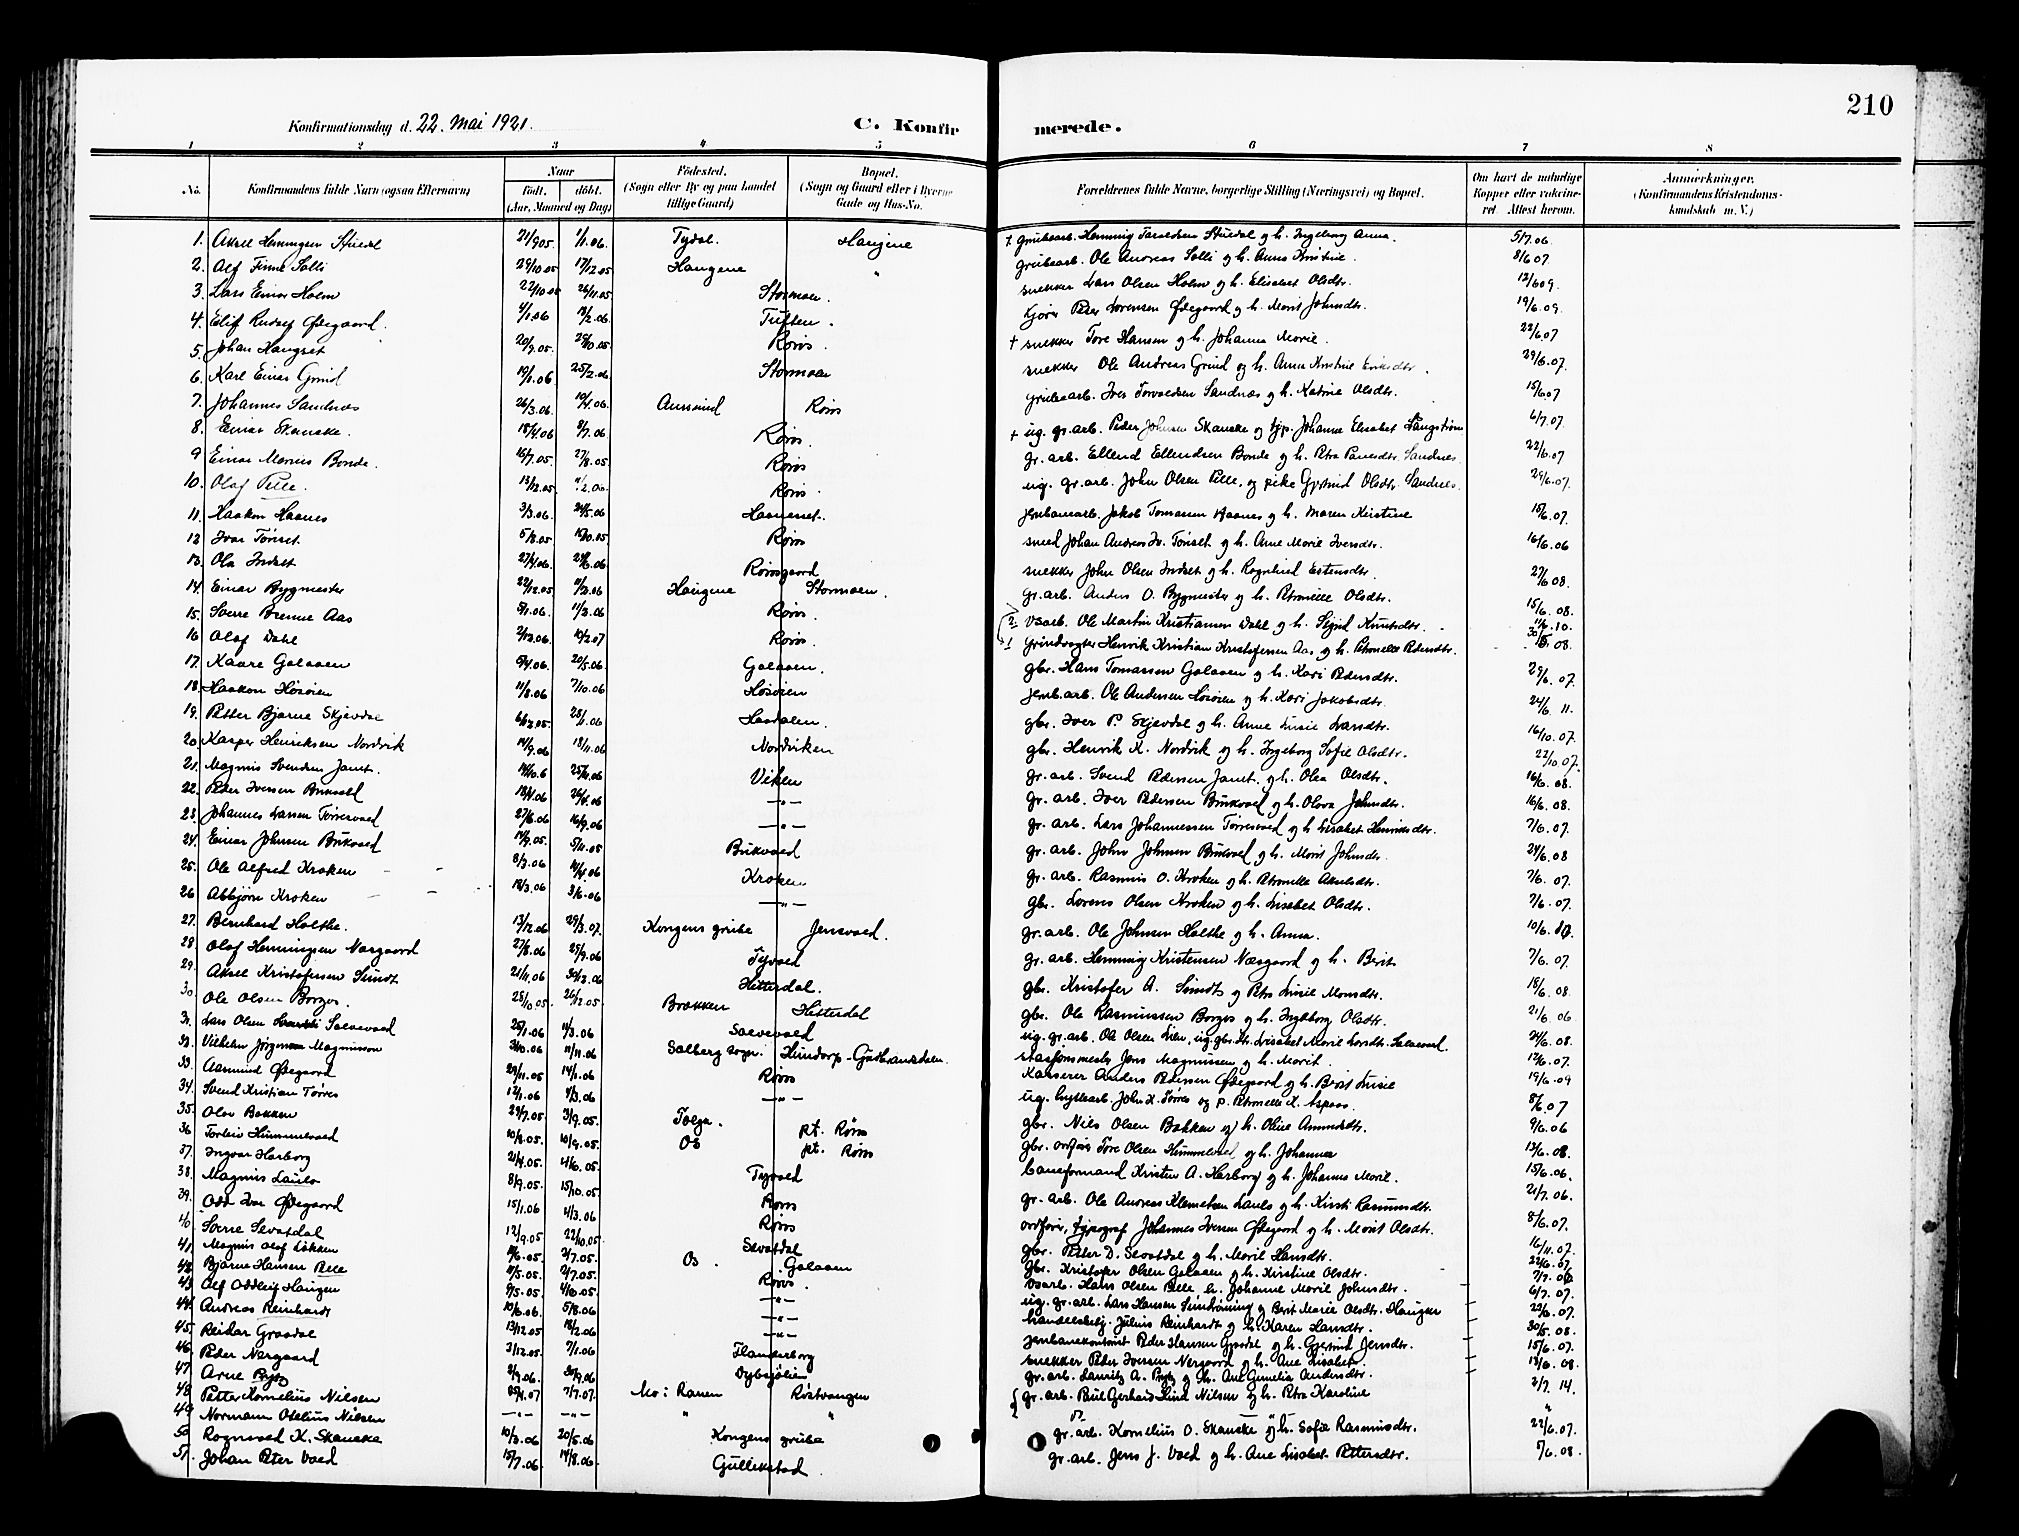 210
Konfirmationsdag d. 22. Mai 1921. C. Konfirmerede.
1 2 3 4 5 6 7 8
No. Konfirmandens fulde Navn (ogsaa Efternavn) Naar født, døbt. (Aar, Maaned og Dag) Fødested. (Sogn eller By og paa Landet tillige Gaard) Bopæl. (Sogn og Gaard eller i Byerne Gade og Hus-No. Forældrenes fulde Navne, borgerlige Stilling (Næringsvei) og Bopæl. Om havt de naturlige Kopper eller vaksineret. Attest herom. Anmerkninger. (Konfirmandens Kristendomskundskab m. V.)
1. Aksel Henningsen Stuedal 21/9 05 1/1.06. Tydal. Haugene + grubearb. Henning Tarvaldsen Stuedal og h. Ingeborg Anna. 5/7.06
2. Alf Finne Solli 29/10.05 17/12.05 Haugene " grubearb. Ole Andreas Solli og h. Anna Kristine. 8/6 07.
3. Lars Einar Holm 22/10 05 26/11.05 Stormoen. snekker Lars Olsen Holm og h. Elisabet Olsdtr. 12/6 09.
4. Elif Rudolf Ødegaard. 4/1.06 18/2.06. Tuften. kjører Peder Lorensen Ødegaard og h. Marit Johnsdtr. 19/6.09.
5. Johan Haugset 20/9.05. 29/10.05 Røros. + snekker Tore Hansen og h. Johanna Marie. 22/6.07
6. Karl Einar Grind 19/1.06 25/2.06 Stormoen snekker Ole Andreas Grind og h. Anna Kristine Eriksdtr. 29/6.07.
7. Johannes Sandnæs 26/3.06. 10/4.06. Aursund Røros grubearb. Iver Torvaldsen Sandnæs og h. Katrine Olsdtr. 15/6.07
8. Einar Skanske. 18/4.06 8/7.06 Røros. + ug. gr.arb. Peder Johnsen Skanske og tjp. Johanne Elisabet Langstrøm 6/7.07.
9 Einar Marius Bonde. 16/7.05. 27/8.05. Røros gr. arb. Ellend Ellendsen Bonde og h. Petra Paulsdtr. Sandnes. 22/6.07
10. Olaf Pelle. 13/12.05 11/2.06. Røros. ug. gr.arb. John Olsen Pelle, og pike Gjertrud Olsdtr. Sandnes. 29/6.07.
11. Haakon Haanes 3/3.06. 24/5.06 Haaneset. jernbanearb. Jakob Tomassen Haanes og h. Maren Kristine 15/6.07.
12 Ivar Tønset 5/8.05 10/10.05 Røros smed Johan Andreas Iv. Tønset og h. Ane Marie Iversdtr. 16/6.06
13. Ola Indset 27/4.06. 24/6.06 Rørosgaard snekker John Olsen Indset og h. Ragnhild Estensdtr. 27/6 08.
14. Einar Bygmester 22/12.05 11/2.06 Haugene Stormoen. gr. arb. Anders O. Bygmester og h. Petronelle Olsdtr.
15. Sverre Brenne Aas 5/1.06. 11/3.06 Røros 2 vsarb. Ole Martin Kristiansen Dahl og h. Sigrid Knutsdtr. 15/6. 08.
16 Olaf Dahl 2/12.06. 10/2.07 Røros. 1 grindvogter Henrik Kristian Kristofersen Aas og h. Petronelle Pedersdtr. 08.
17. Kaare Galaaen 5/4.06. 20/5.06 Galaaen. gbr. Hans Tomassen Galaaen og h. Kari Pedersdtr. 29/6.07.
18. Haakon Høsøien 11/8.06 7/10.06 Høsøien jernb.arb. Ole Andersen Høsøien og h. Kari Jakobsdtr. 24/6 11.
19. Petter Bjarne Skjevdal 6/12.05. 28/1.06 Hådalen. gbr. Iver P. Skjevdal og h. Anne Lusie Larsdtr. 16/10.07.
20 Kasper Henriksen Nordvik 14/9.06 18/11.06 Nordviken gbr. Henrik K. Nordvik og h. Ingeborg Sofie Olsdtr. 22/10 07.
21. Magnus Svendsen Janet. 14/10.6 25/11.06 Viken gr. arb. Svend Pedersen Janet. og h. Olea Olsdtr. 16/6. 08.
22. Peder Iversen Bukvold 18/4.06 26/4.06 —"— gr. arb. Iver Pedersen Bukvold og h. Olova Johnsdtr. 16/6. 08.
23. Johannes Larsen Tørresvold 27/6.06 16/9.06 —"— gr. arb. Lars Johannessen Tørresvold og h. Lisabet Henriksdtr. 7/6. 07.
24. Einar Johnsen Bukvold 14/9.05. 5/11.05 Bukvold gr. arb. John Johnsen Bukvold og h. Marit Johnsdtr. 24/6.08
25. Ole Alfred Kroken 8/3.06 14/4.06 Kroken gr. arb. Rasmus O. Kroken og h. Petronella Akselsdtr. 7/6. 07.
26 Asbjørn Kroken 18/3.06 3/6.06 —"— gbr. Lorens Olsen Kroken og h. Lisabet Olsdtr. 7/6. 07.
27. Bernhard Holthe. 13/12.06 29/3.07. Kongens grube Jensvold. gr. arb. Ole Johnsen Holthe og h. Anna. 10/6.10.
28. Olaf Henningsen Næsgaard 27/8.06 29/9.06 Tyvold gr. arb. Henning Kristensen Næsgaard og h. Berit 7/6. 07.
29. Aksel Kristofersen Sundt 21/11.06 Hitterdal. gbr. Kristofer A. Sundt og Petra Lusie Monsdtr. 18/6. 08.
30 Ole Olsen Borgos. 28/10.05. 26/12.05 Brækken Hitterdal gbr. Ole Rasmussen Borgos og h. Ingeborg Olsdtr. 21/6. 06
31. Lars Olsen Solvold 25/1.06 11/3.06 Solvold ug. gr.arb. Ole Olsen Lien, ug. gbr.dtr. Lisabet Marie Larsdtr. Solvold. 24/6.08.
32. Vilhelm Jørgensen Magnusson 3/10.06 11/11.06 Solberg sogn. Hundorp - Gudbrandsdalen. stasjonsmester Jens Magnussen og h. Marit. 12/6.07.
33. Aasmund Ødegaard 29/11.05 14/1.06 Røros Kasserer Anders Pedersen Ødegaard og h. Berit Lusie 19/6.09
34. Svend Kristian Tørres 12/1.06 4/3.06 —"— ug. hyttearb. John K. Tørres og p. Petronelle K. Aspaas. 8/6 07
35. Olav Bakken 24/7.05 3/9.05. Tolga. pt. Røros gbr. Nils Olsen Bakken og h. Oline Amundsdtr. 9/6.06
36 Torleiv Hummelvold 10/8.05. 10/9.05. Os pt. Røros gbr. ordfører Tore Olsen Hummelvold og h. Johanna 13/6.08.
37. Ingvar Harborg 21/4.05. 4/6.05. Tyvold baneformand Kristen A. Harborg og h. Johanna Marie. 15/6.06.
38. Magnus Laulo 8/9.05. 15/10.05. Røros gr. arb. Ole Andreas Klemetsen Laulo og h. Kirsti Rasmusdtr. 21/7.06.
39. Odd Ivar Ødegaard 15/1.06 4/3.06 Røros ordfører, typograf Johannes Iversen Ødegaard og h. Marit Olsdtr. 8/6.07.
40. Sverre Sevatdal 12/9.05 22/10.05. Sevatdal gbr. Peter D. Sevatdal og h. Marie Hansdtr. 16/11.07.
41. Magnus Olaf Løkken 11/6.05. 2/7.05. Os. Galaaen gbr. Kristofer Olsen Galaaen og h. Kirstine Olsdtr. 22/6.07.
42. Bjarne Hansen Pelle 11/5.05. 2/7.05. Røros. vsarb. Hans Olsen Pelle, h. Johanne Marie Johnsdtr. 7/7.06
43 Alf Oddleif Haugen 9/5.05. 4/6.05 —"— ug. gr. arb. Lars Hansen Sundrønning og Berit Marie Olsdtr. Haugen 6/7.07.
44. Andreas Reinhardt 10/6.06. 5/8.06 —"— handelsbetj. Julius Reinhardt og h. Karen Hansdtr. 22/6. 07.
45. Reidar Graadal 13/12.05 18/2.06 —"— jernbanekontorist Peder Hansen h. Gjertrud Jensdtr. 30/5.08.
46. Peder Nergaard 3/12.05. 7/1.06 Flanderborg snekker Peder Iversen Nergaard og h. Ane Lisabet. 15/6.07.
47 Arne Bytz 2/9.06. 30/9.06 Dybsjølien gr. arb. Lauritz A. Bytz og h. Ane Gunelia Andersdtr. 18/6. 08.
48 Petter Kornelius Nilsen 4.07 7/7.07. Mo i Ranen Røstvangen gr. arb. Paul Gerhard Lund Nilsen og h. Petra Karoline 2/7. 14.
49 Normann Otelius Nilsen —"— —"— " " "
50 Rognvald K. Skanske 10/3.06 20/5.06 Kongens grube gr. arb. Kornelius O. Skanske og h. Sofie Rasmusdtr. 22/6.07.
51. Johan Peter Vold 15/7.06. 19/8.06 Gullikstad gr. arb. Jens J. Vold og h. Ane Lisabet Pettersdtr. 5/6.08.